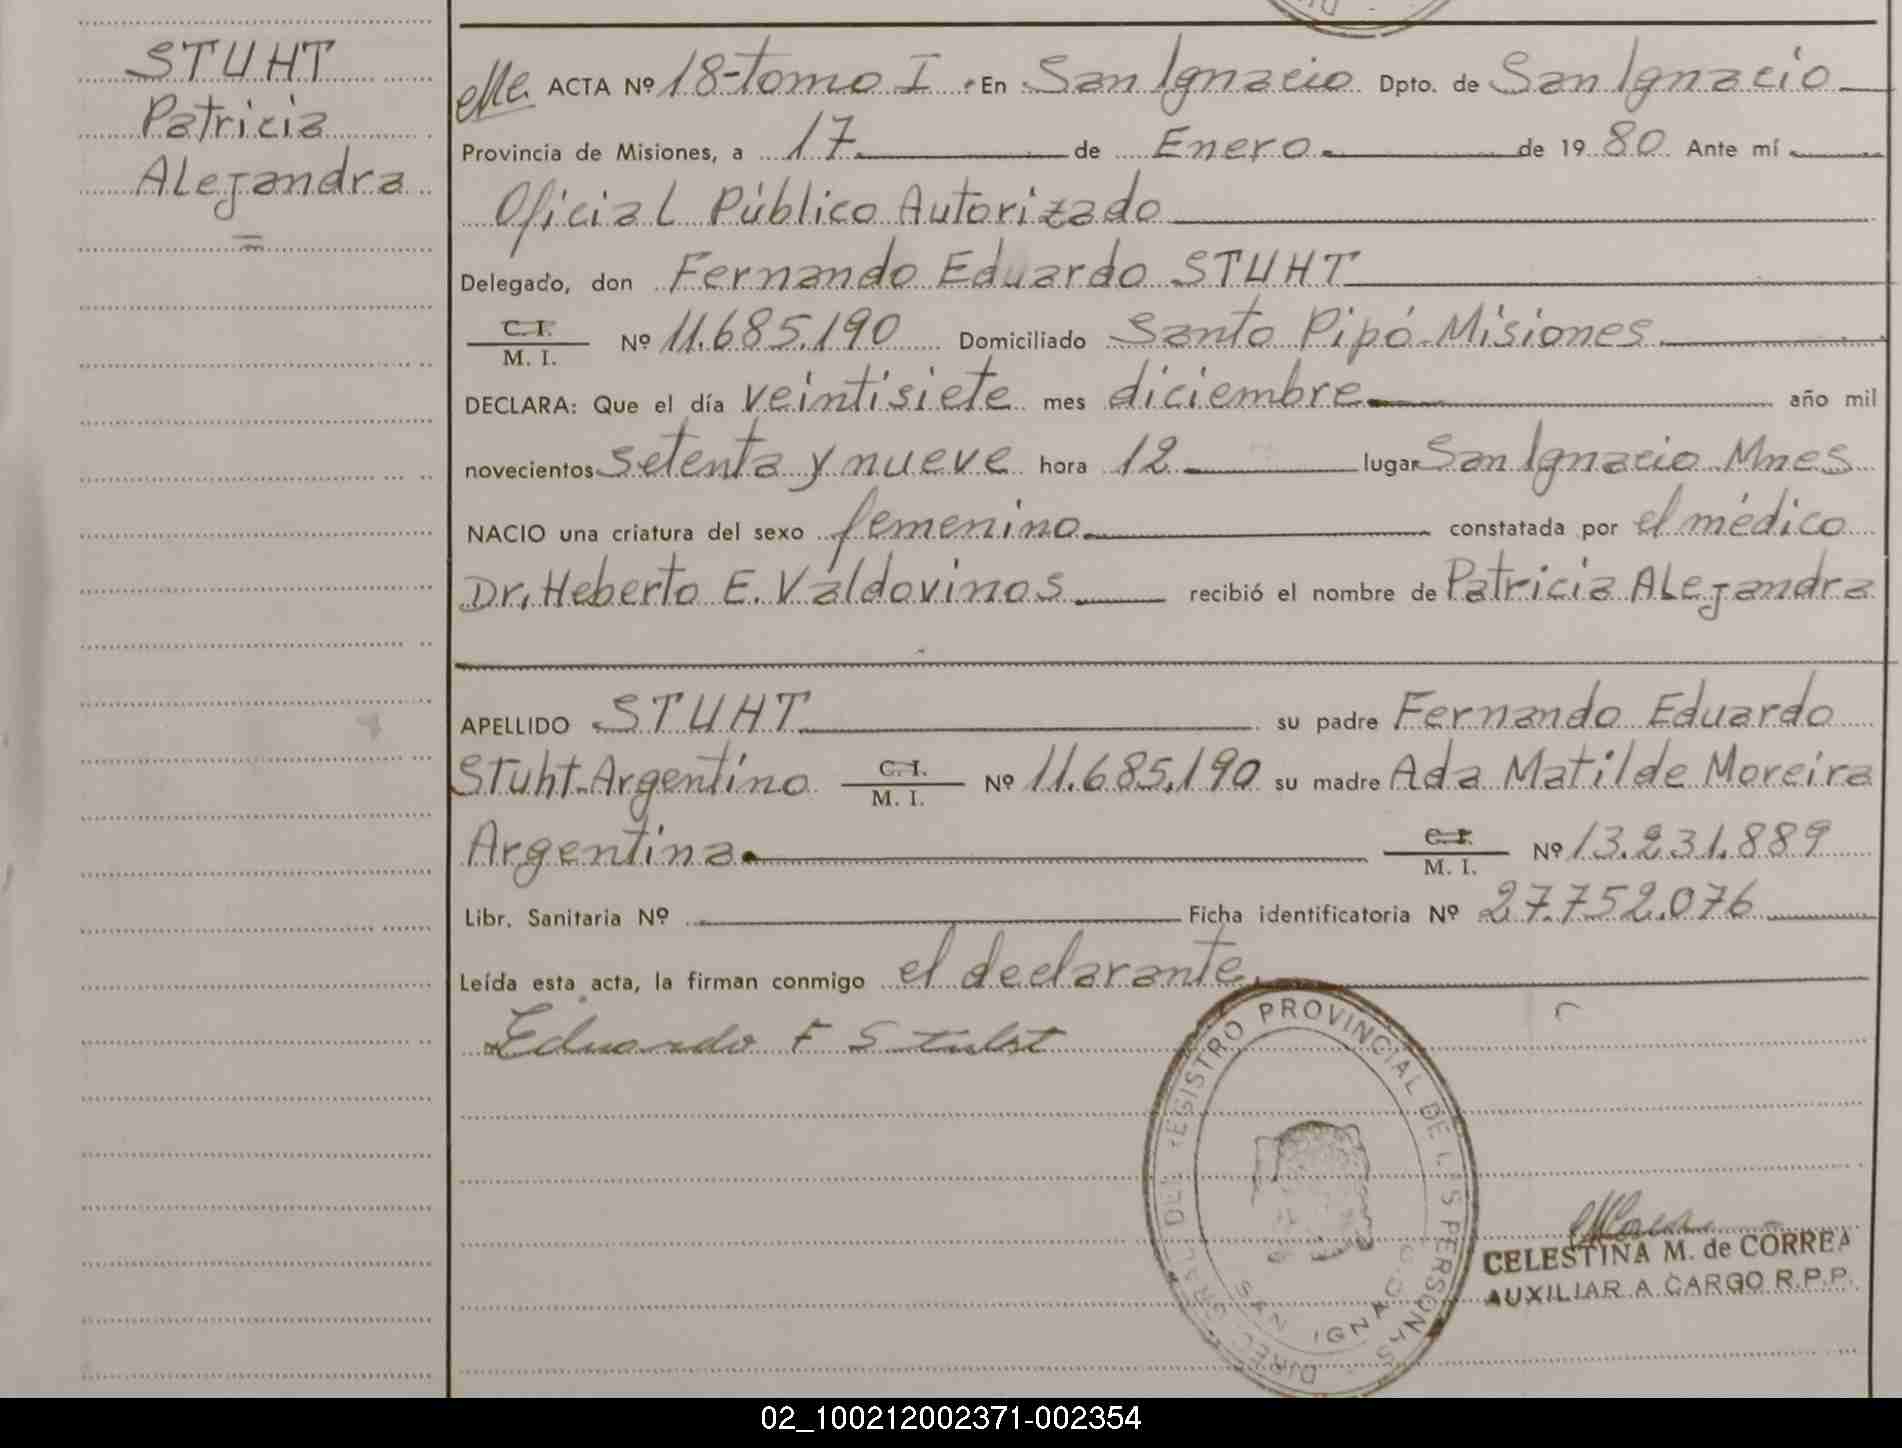 STUHT
Patricia
Alejandra
ACTA Nº 18-tomo I. En San Ignacio Dpto. de San Ignacio
Provincia de Misiones, a 17 de Enero de 1980 Ante mí
Oficial Público Autorizado
Delegado, don Fernando Eduardo STUHT
C. I.
M. I. Nº 11.685.190 Domiciliado Santo Pipó-Misiones
DECLARA: Que el día veintisiete mes diciembre año mil
novecientos setenta y nueve hora 12 lugar San Ignacio Mnes
NACIO una criatura del sexo femenino constatada por el médico
Dr. Heberto E. Valdovinos recibió el nombre de Patricia Alejandra
APELLIDO STUHT su padre Fernando Eduardo
Stuht-Argentino C. I. M. I. Nº 11.685.190 su madre Ada Matilde Moreira
Argentina C. I. M. I. Nº 13.231.889
Libr. Sanitaria Nº Ficha identificatoria Nº 27.752.076
Leída esta acta, la firman conmigo el declarante.
Eduardo F Stuht
REGISTRO PROVINCIAL DE LAS PERSONAS
SAN IGNACIO
CELESTINA M. de CORREA
AUXILIAR A CARGO R.P.P.
02_100212002371-002354